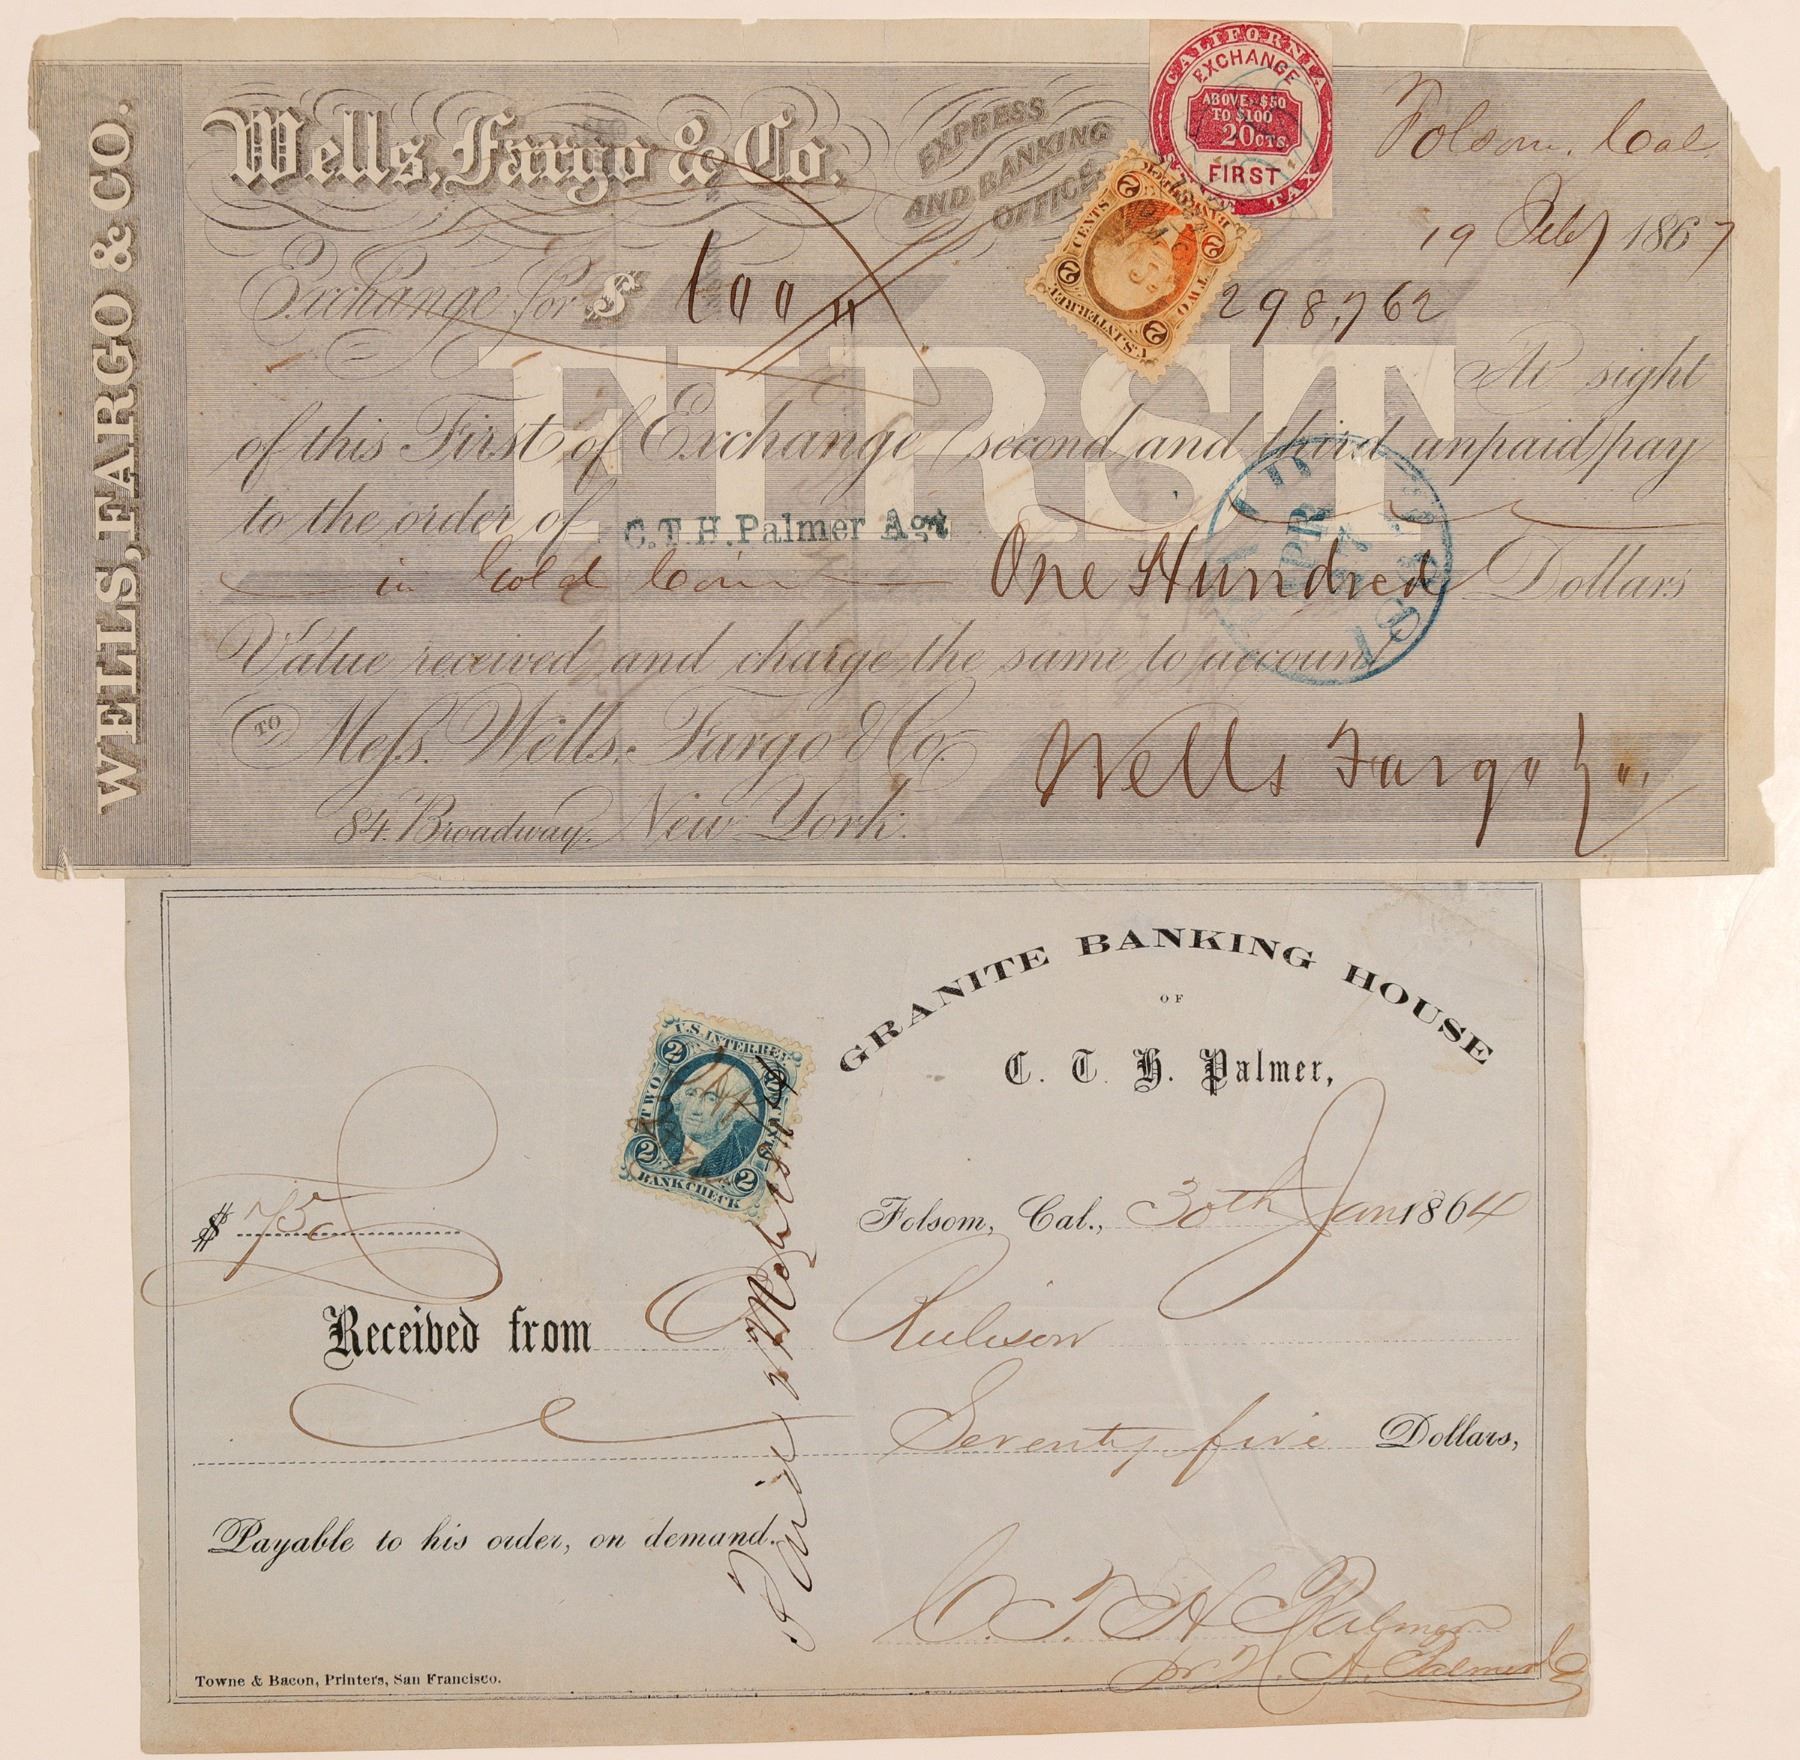 WELLS, FARGO & CO.
Wells, Fargo & Co.
EXPRESS
AND BANKING
OFFICE.
CALIFORNIA
EXCHANGE
ABOVE $50
TO $100
20 CTS.
FIRST
TAX
Folsom, Cal
19 Feby 1867
Exchange for $ 100
U.S. INTER. REV.
TWO
CENTS
2 2 2 2
298,762
FIRST
At sight
of this First of Exchange (second and third unpaid) pay
to the order of C.T.H. Palmer Agt
in Gold Coin One Hundred Dollars
Value received and charge the same to account
TO Mess. Wells, Fargo & Co.
84 Broadway, New York.
Wells Fargo & Co.
GRANITE BANKING HOUSE
OF
C. T. H. Palmer,
U.S. INTER. REV.
2 2
TWO
2 2
BANK CHECK
$ 75
Folsom, Cal., 30th Jan 1864
Received from Rulison
Seventy five Dollars,
Payable to his order, on demand.
Paid
C. T. H Palmer
pr. H. A. Palmer
Towne & Bacon, Printers, San Francisco.